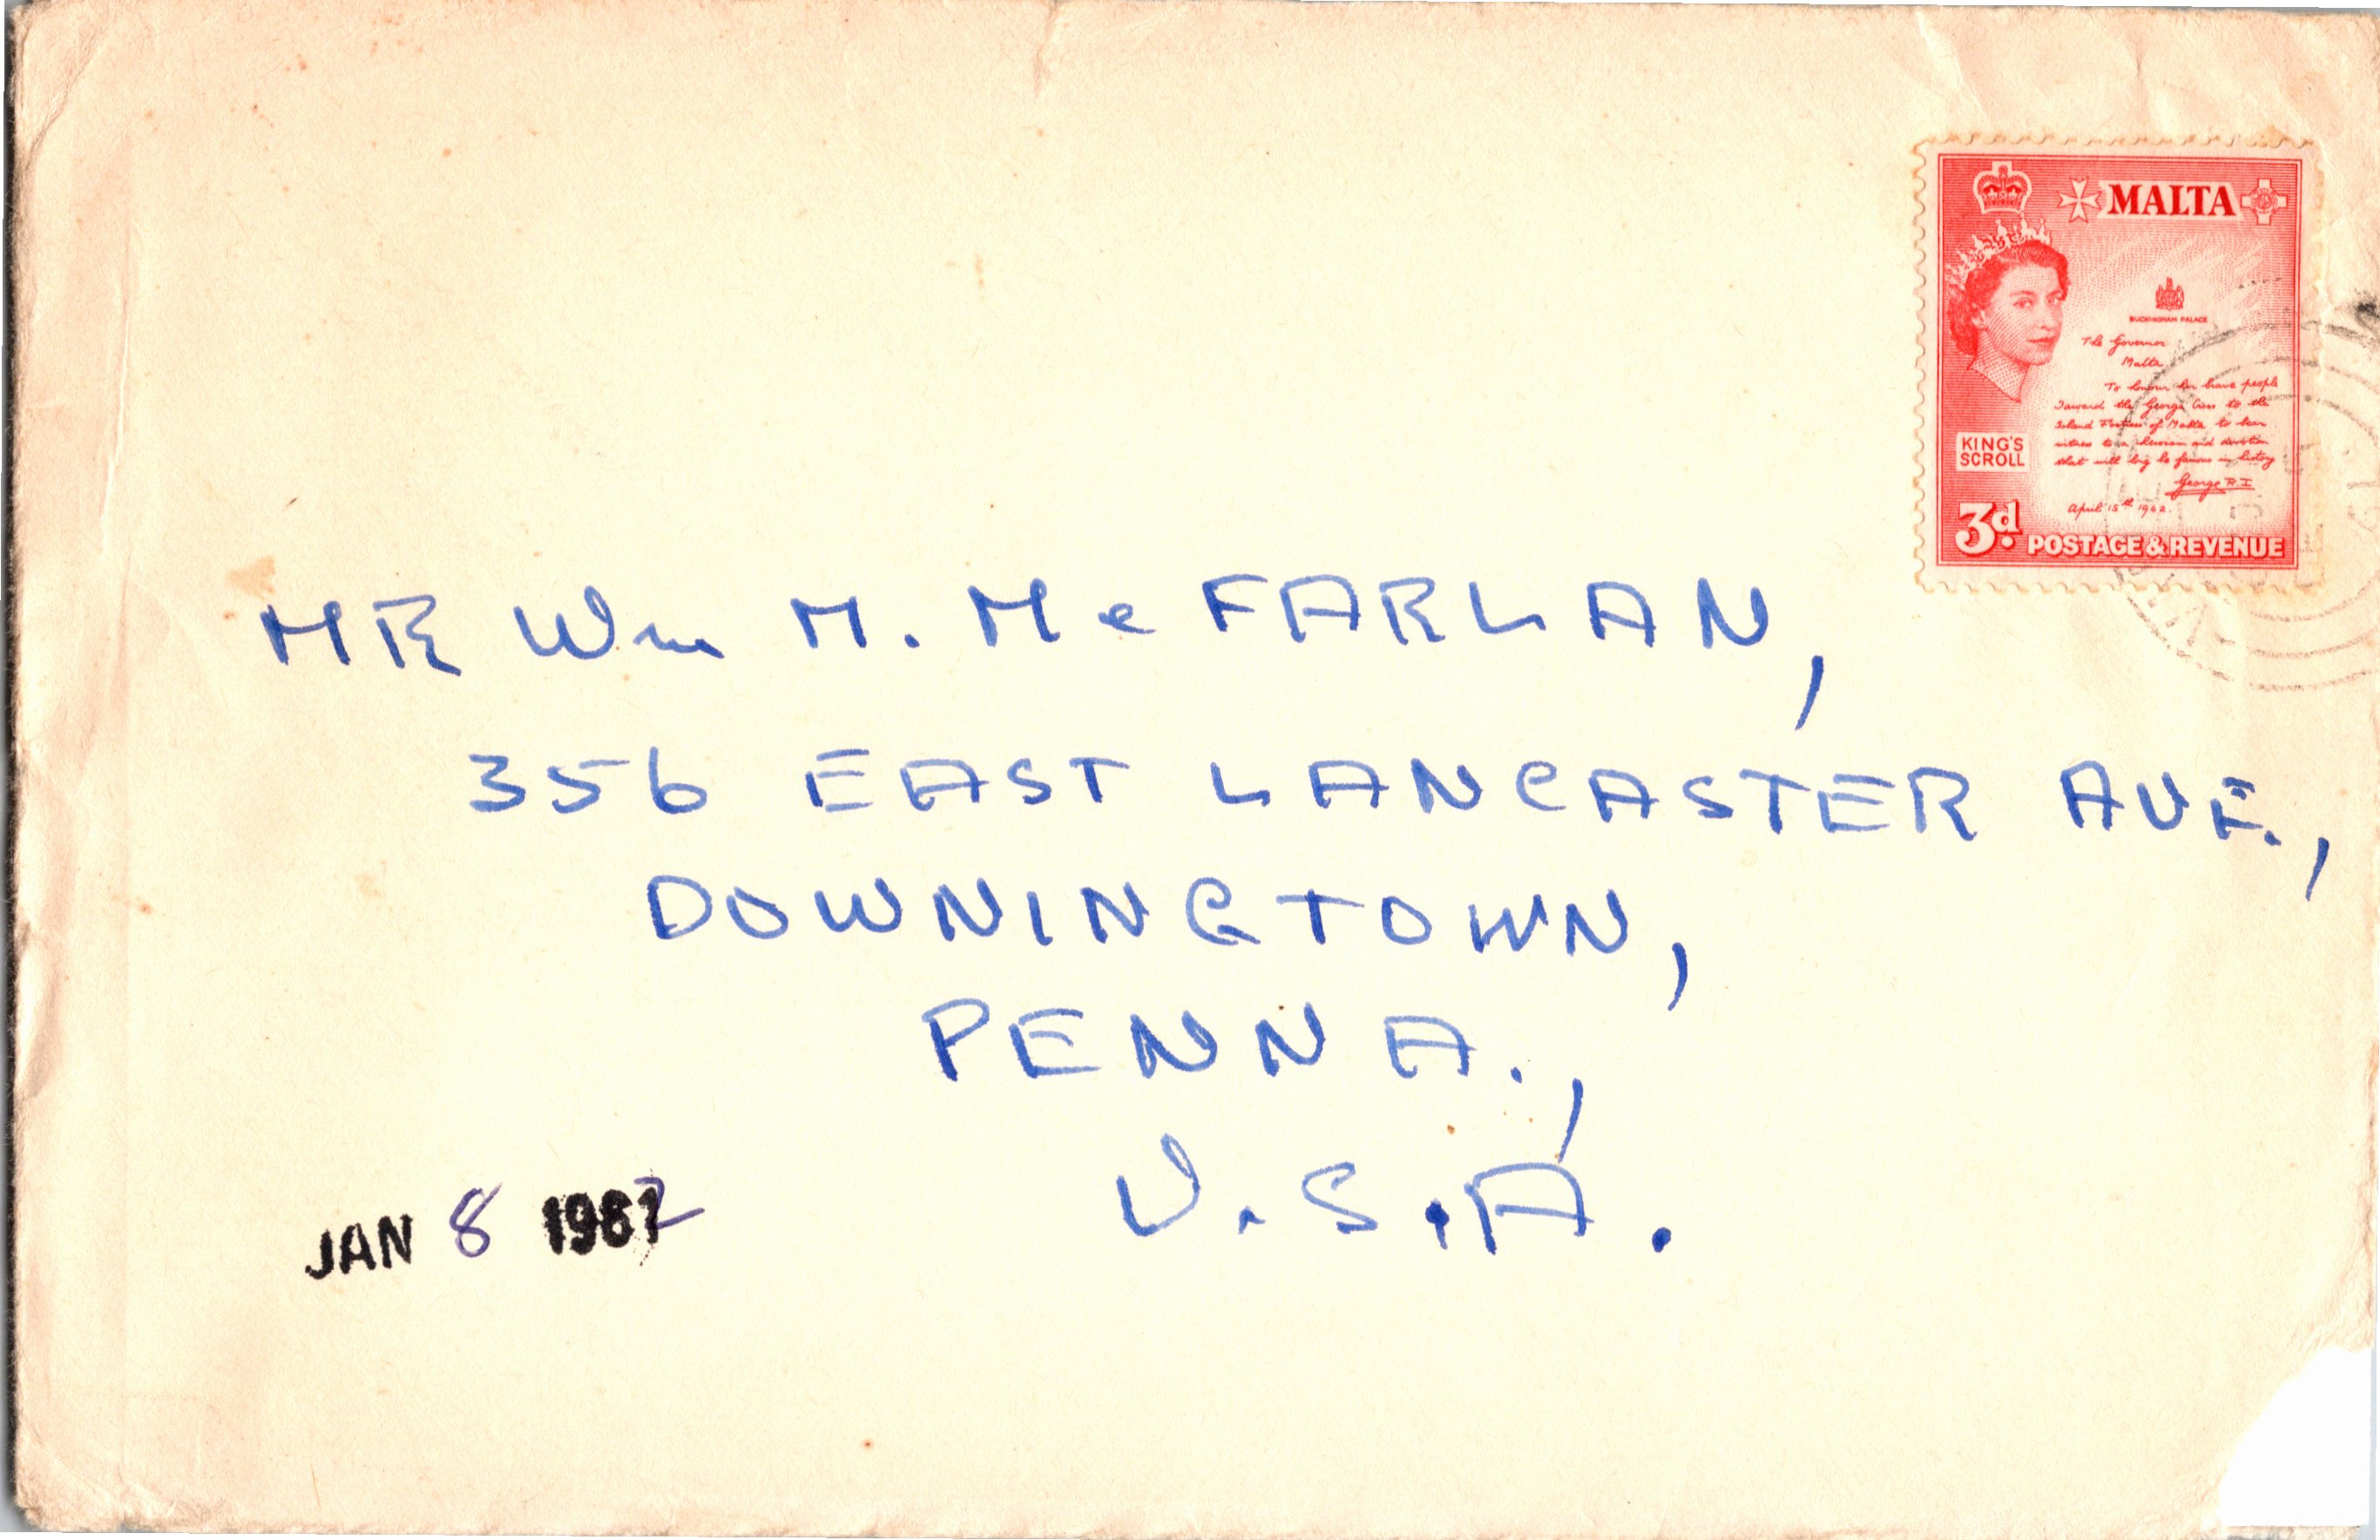 MALTA
BUCKINGHAM PALACE
The Governor
Malta
To honour her brave people
I award the George Cross to the
Island Fortress of Malta to bear
witness to a heroism and devotion
that will long be famous in history
George R.I
April 15th 1942.
KING'S
SCROLL
3d. POSTAGE & REVENUE
MR Wm M. McFARLAN,
356 EAST LANCASTER AVE.,
DOWNINGTOWN,
PENNA.,
U.S.A.
JAN 8 1962